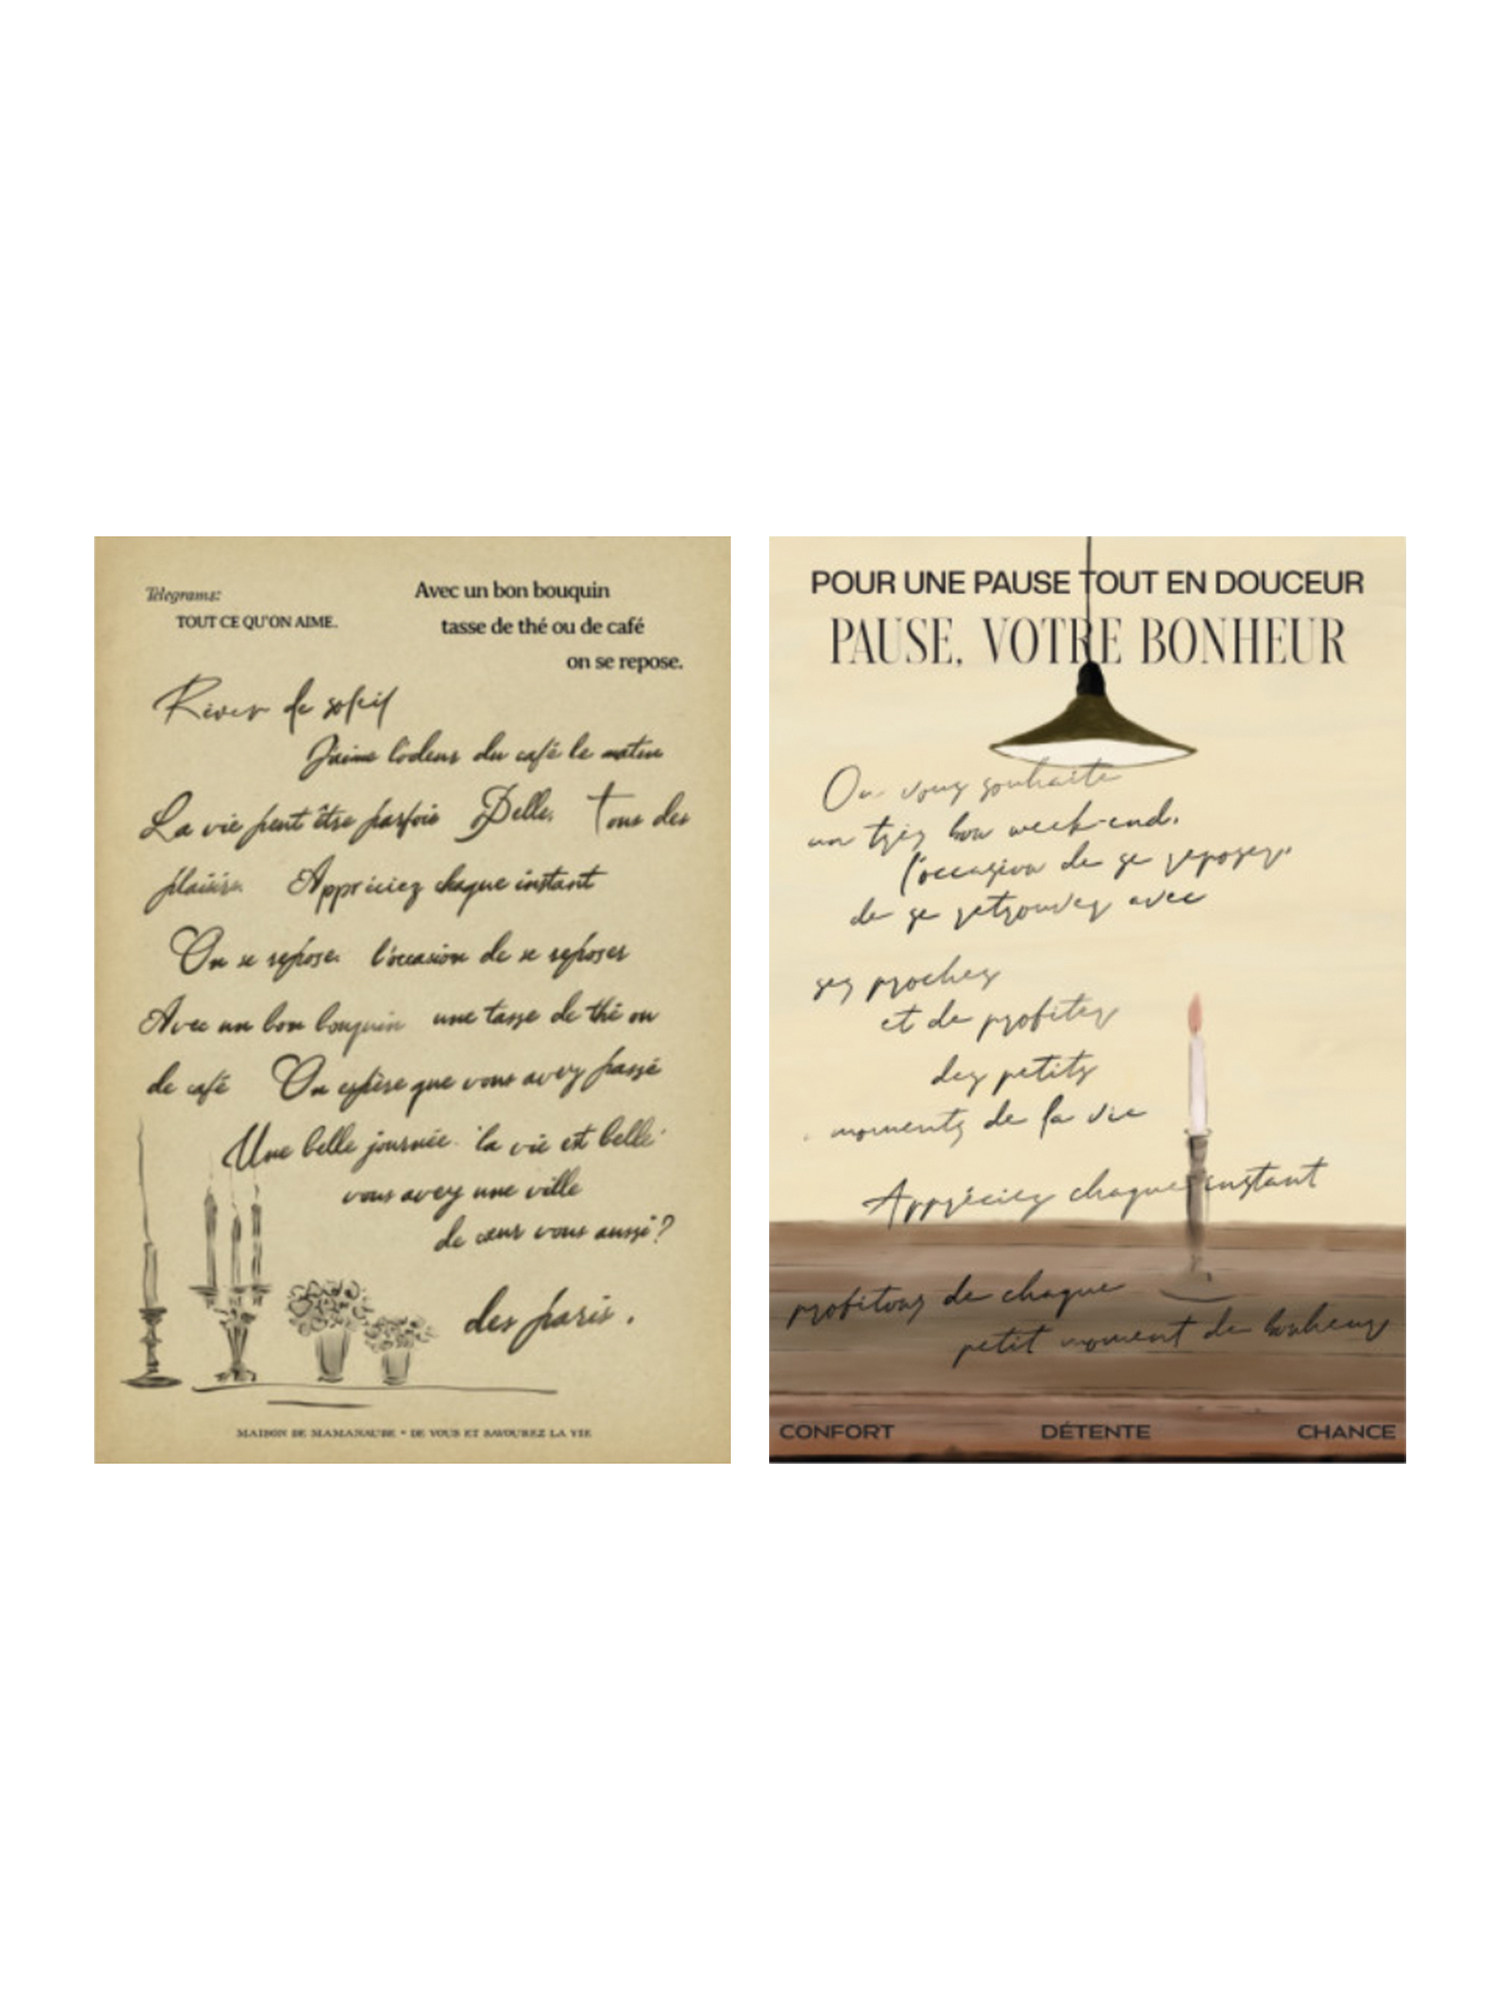 Telegrams:
TOUT CE QU'ON AIME.
Avec un bon bouquin
tasse de thé ou de café
on se repose.
Rêver de soleil
J'aime l'odeur du café le matin
La vie peut être parfois Belle. Tous des
plaisirs. Appréciez chaque instant
On se repose. l'occasion de se reposer
Avec un bon bouquin une tasse de thé ou
de café On espère que vous avez passé
Une belle journée. "la vie est belle"
vous avez une ville
de cœur vous aussi?
des paris.
MAISON DE MAMANAUBE • DE VOUS ET SAVOUREZ LA VIE
POUR UNE PAUSE TOUT EN DOUCEUR
PAUSE, VOTRE BONHEUR
On vous souhaite
un très bon week-end.
l'occasion de se reposer,
de se retrouver avec
ses proches
et de profiter
des petits
moments de la vie
Appréciez chaque instant
profitons de chaque
petit moment de bonheur
CONFORT DÉTENTE CHANCE